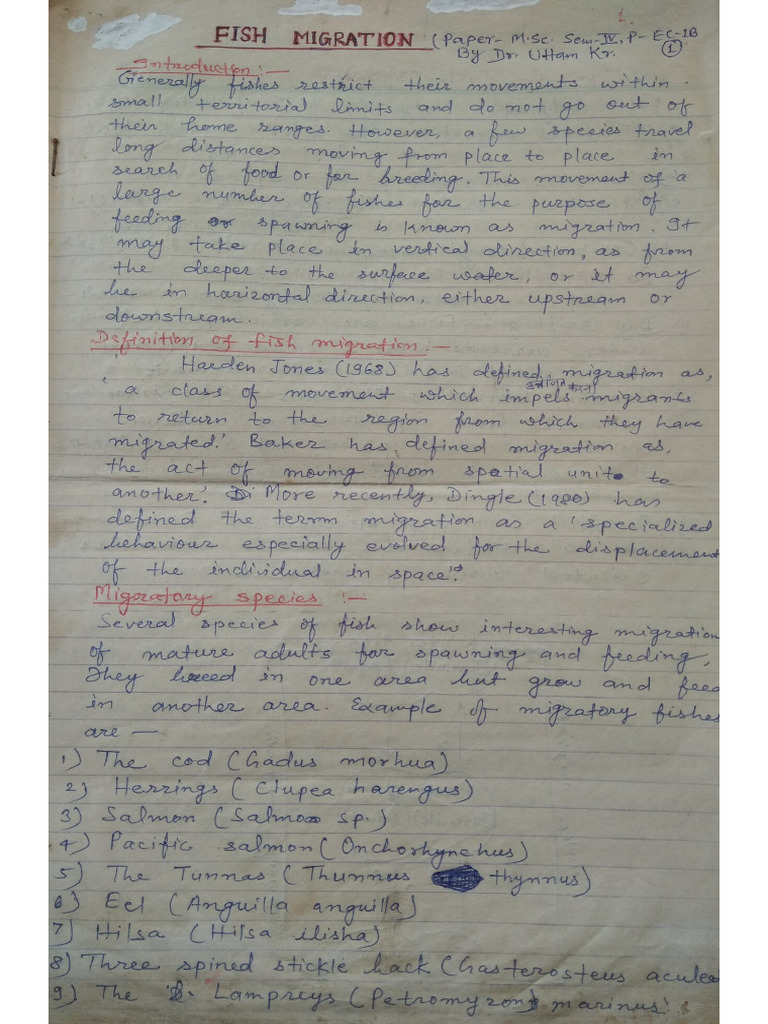 1.
FISH MIGRATION (Paper- M.Sc. Sem-IV, P- EC-1B
By Dr. Uttam Kr. 1
Introduction:-
Generally fishes restrict their movements within
small territorial limits and do not go out of
their home ranges. However, a few species travel
long distances moving from place to place in
search of food or for breeding. This movement of a
large number of fishes for the purpose of
feeding or spawning is known as migration. It
may take place in vertical direction, as from
the deeper to the surface water, or it may
be in horizontal direction, either upstream or
downstream.
Definition of fish migration:-
Harden Jones (1968) has defined migration as,
'a class of movement which impels migrants
to return to the region from which they have
migrated.' Baker has defined migration as,
the act of moving from spatial unit to
another'. More recently, Dingle (1980) has
defined the term migration as a 'specialized
behaviour especially evolved for the displacement
of the individual in space'.
Migratory species :-
Several species of fish show interesting migration
of mature adults for spawning and feeding,
They breed in one area but grow and feed
in another area. Example of migratory fishes
are —
1) The cod (Gadus morhua)
2) Herrings (Clupea harengus)
3) Salmon (Salmo sp.)
4) Pacific salmon (Onchorhynchus)
5) The Tunnas (Thunnus thynnus)
6) Eel (Anguilla anguilla)
7) Hilsa (Hilsa ilisha)
8) Three spined stickle back (Gasterosteus aculea
9) The Lampreys (Petromyzon marinus